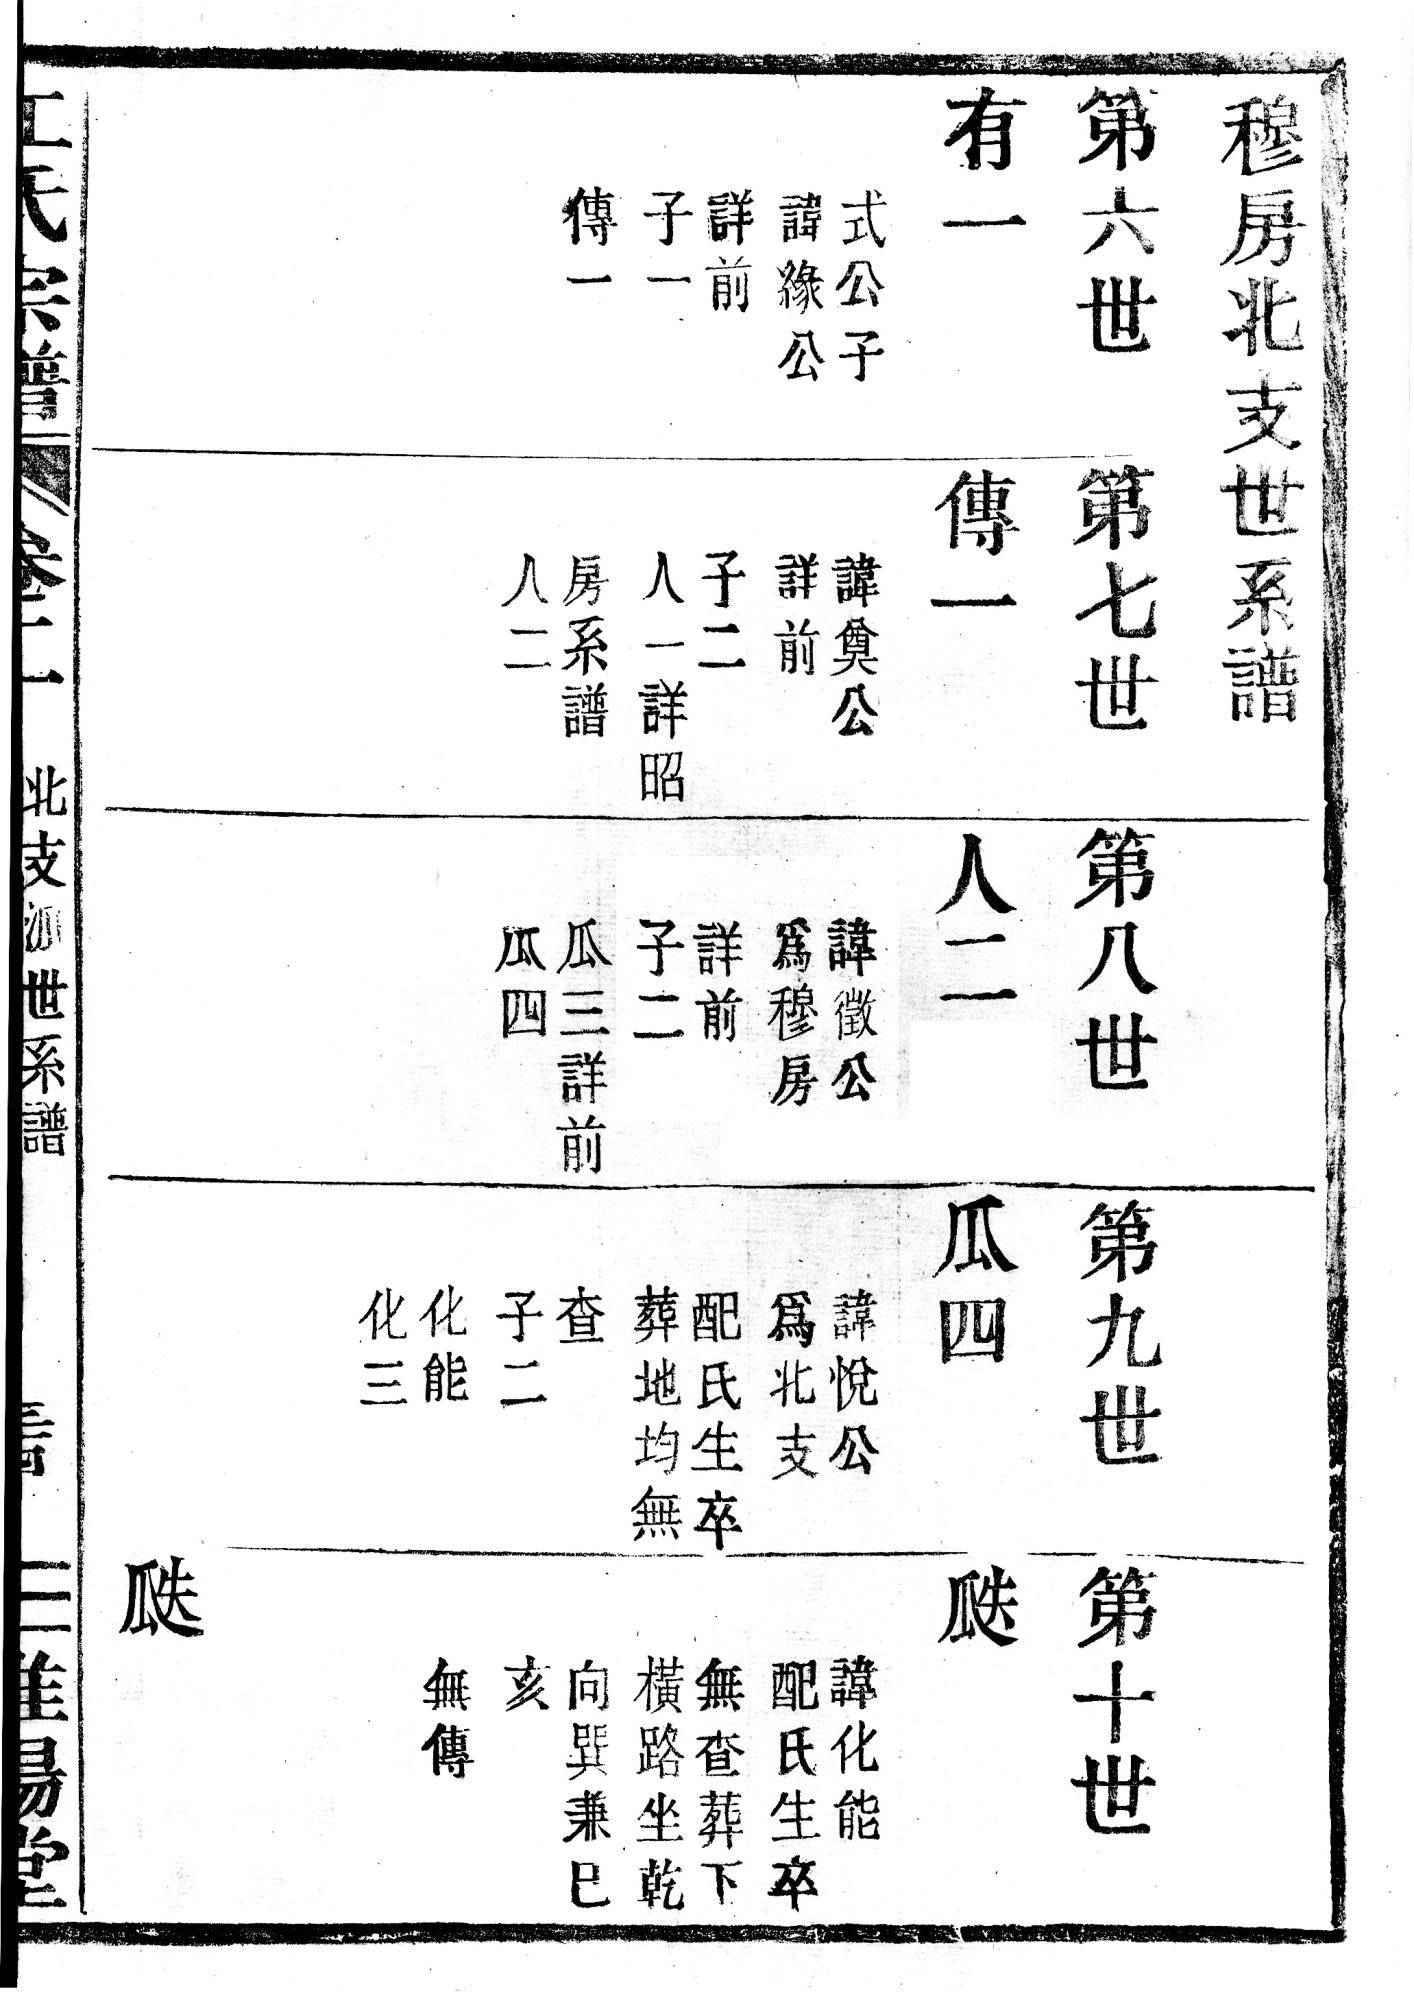 穆房北支世系譜
第六世
有一
式公子
諱緣公
詳前
子一
傳一
第七世
傳一
諱奠公
詳前
子二
人一詳昭
房系譜
人二
第八世
人二
諱徵公
爲穆房
詳前
子二
瓜三詳前
瓜四
第九世
瓜四
諱悅公
爲北支
配氏生卒
葬地均無
查
子二
化能
化三
第十世
瓞
諱化能
配氏生卒
無查葬下
橫路坐乾
向巽兼巳
亥
無傳
瓞
江氏宗譜
卷二
北支派世系譜
堂